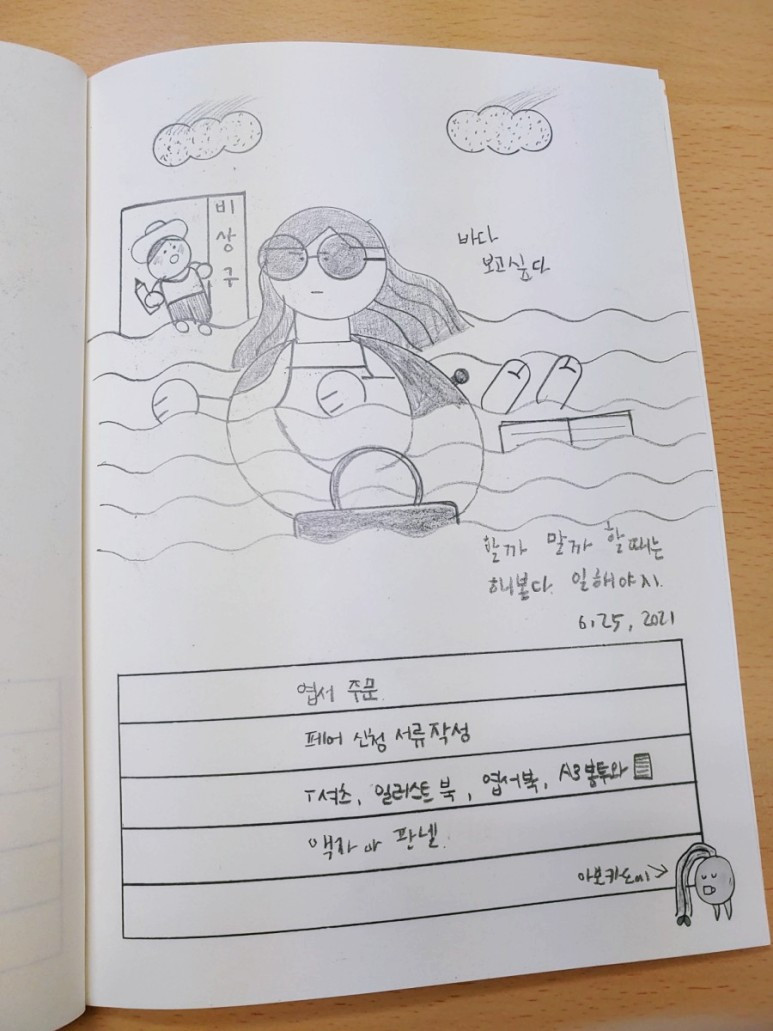 비상구
바다
보고싶다
할까 말까 할때는
해본다. 일해야지.
6.25, 2021
엽서 주문.
페어 신청 서류작성
T셔츠, 일러스트 북, 엽서북, A3봉투와
액자 와 판넬.
아보카도씨